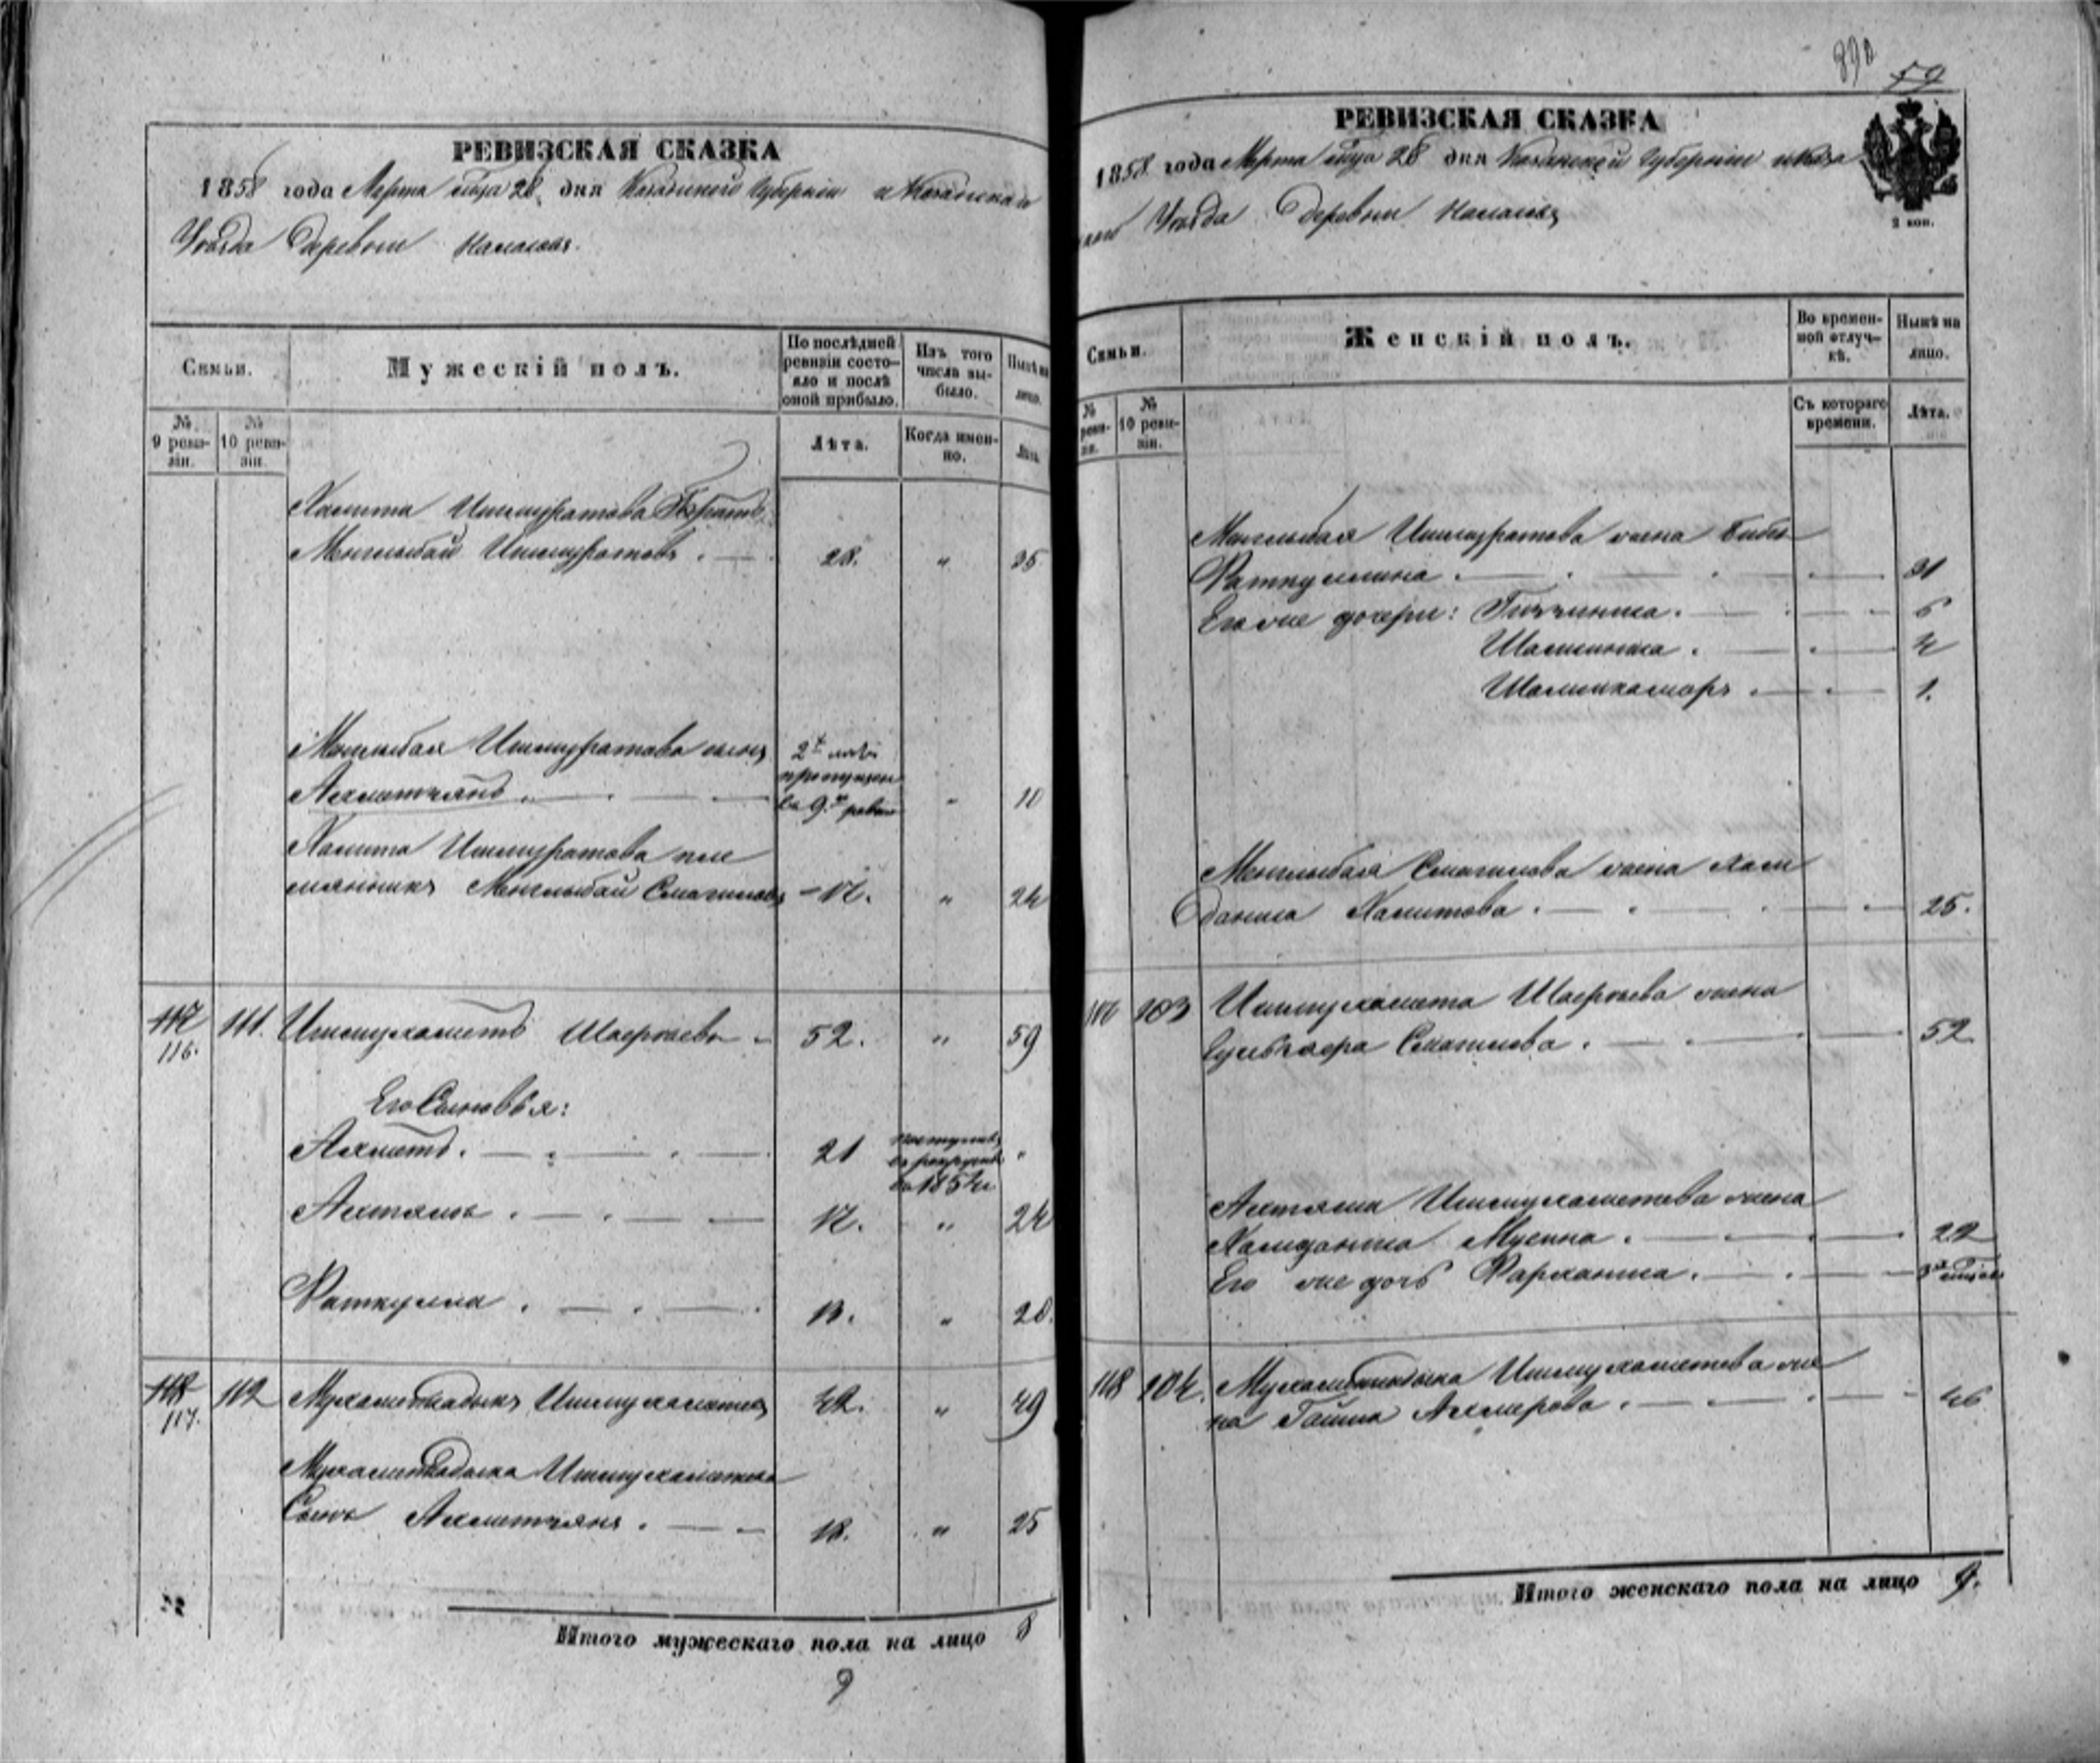 РЕВИЗСКАЯ СКАЗКА
1858 года Марта 28 дня Казанской Губернии и Казанскаго
Уезда Деревни
Семьи.
Мужескій полъ.
По послѣдней ревизіи состояло и послѣ оной прибыло.
Изъ того числа выбыло.
Нынѣ на лицо.
№ 9 ревизіи.
№ 10 ревизіи.
Лѣта.
Когда именно.
Лѣта.
Хамита Ишмуратова Братъ
Менглыбай Ишмуратовъ . — 28. " 35
Менглыбая Ишмуратова сынъ
Ахметчянъ . — 2х лѣтъ пропущен въ 9й ревизіи " 10
Хамита Ишмуратова пле
мянникъ Менглыбай Смагиловъ — 17. " 24
117 116. 111. Ишмухаметъ 52. " 59
Его Сыновья:
Ахметъ . — 21 поступилъ въ рекруты въ 1854 "
Ахтямъ . — 17. " 24
Фаткулла . — 13. " 20.
118 117. 112 Мухаметсадыкъ Ишмухаметовъ 42. " 49
Мухаметсадыка Ишмухаметова
Сынъ Ахметчянъ . — 18. " 25
Итого мужескаго пола на лицо 8
9
890 59
РЕВИЗСКАЯ СКАЗКА
2 коп.
1858 года Марта 28 дня Казанской Губернии и Каза
нскаго Уезда Деревни
Семьи.
Женскій полъ.
Во временной отлучкѣ.
Нынѣ на лицо.
№ ревизіи.
№ 10 ревизіи.
Съ котораго времени.
Лѣта.
Менглыбая Ишмуратова жена Биби
Фаткуллина . — 31
Его же дочери: . — 6
Шамсиниса . — 4
Шамсикамаръ . — 1.
Менглыбая Смагилова жена
Хамитова . — 25.
103 Ишмухамета жена
Смагилова . — 52
Ахтяма Ишмухаметова жена
Мусина . — 22
Его же дочь Фарханиса . —
118 104. Мухаметсадыка Ишмухаметова же
на Гайша Ахмерова . — 46
Итого женскаго пола на лицо 9.